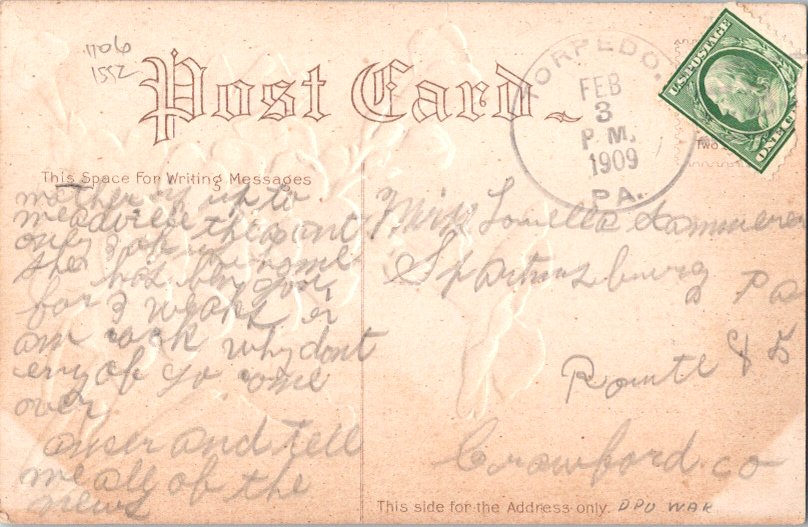 1106
1552
Post Card
TORPEDO.
FEB
3
P.M.
1909
PA.
U.S. POSTAGE
ONE CENT
Two
This Space For Writing Messages
mother is up to
meadville the
only 3 of us home
She has ben gon
for 3 weaks
am why dont
eny of yo come
over
anser and tell
me all of the
news
Miss Louella
Spartansburg Pa
Route 85
Crawford. co
This side for the Address only.
DPO WAR